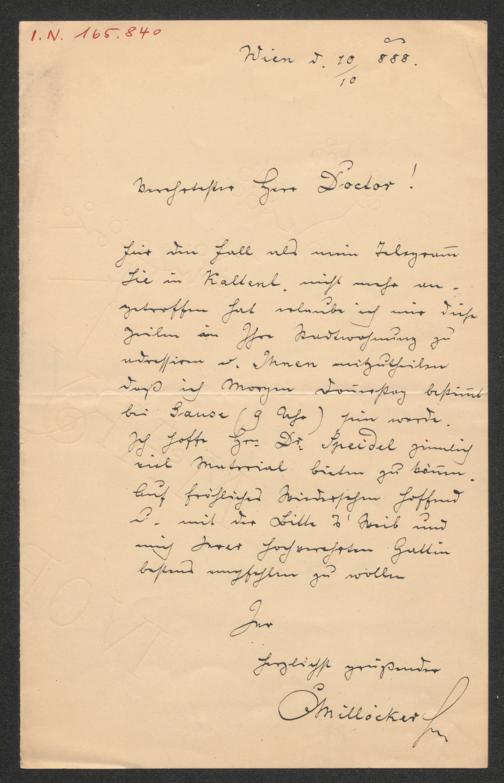 I. N. 165.840
Wien d. 10/10 888.
Verehrtester Herr Doctor!
Für den Fall als mein Telegramm
Sie in Kaltenl. nicht mehr an-
getroffen hat erlaube ich mir diese
Zeilen in Ihre Stadtwohnung zu
adressiren u. Ihnen mitzutheilen
daß ich Morgen Donnerstag bestimmt
bei Gause (9 Uhr) sein werde.
Ich hoffe Hr. Dr. Speidel ziemlich
viel Material bieten zu können.
Auf fröhliches Wiedersehen hoffend
u. mit der Bitte 's Weib und
mich Ihrer hochverehrten Gattin
bestens empfehlen zu wollen
Ihr
herzlichst grüßender
CMillöcker